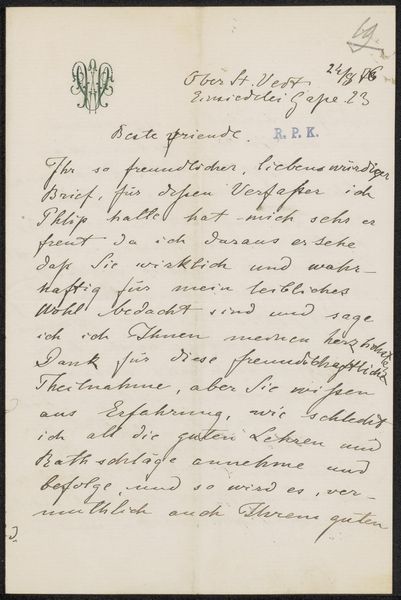 19.
Ober St. Veit
Einsiedlei Gasse 23
Beste Freunde.
R. P. K.
Ihr so freundlicher, liebenswürdiger
Brief, für dessen Verfasser ich
Phlip halte hat mich sehr er
freut da ich daraus ersehe
daß Sie wirklich und wahr-
haftig für mein leibliches
Wohl bedacht sind und sage
ich ich Ihnen meinen herzlichsten
Dank für diese freundschaftliche
Theilnahme, aber Sie wissen
aus Erfahrung, wie schlecht
ich all die guten Lehren und
Rathschläge annehme und
befolge, und so wird es, ver-
muthlich auch Ihrem guten